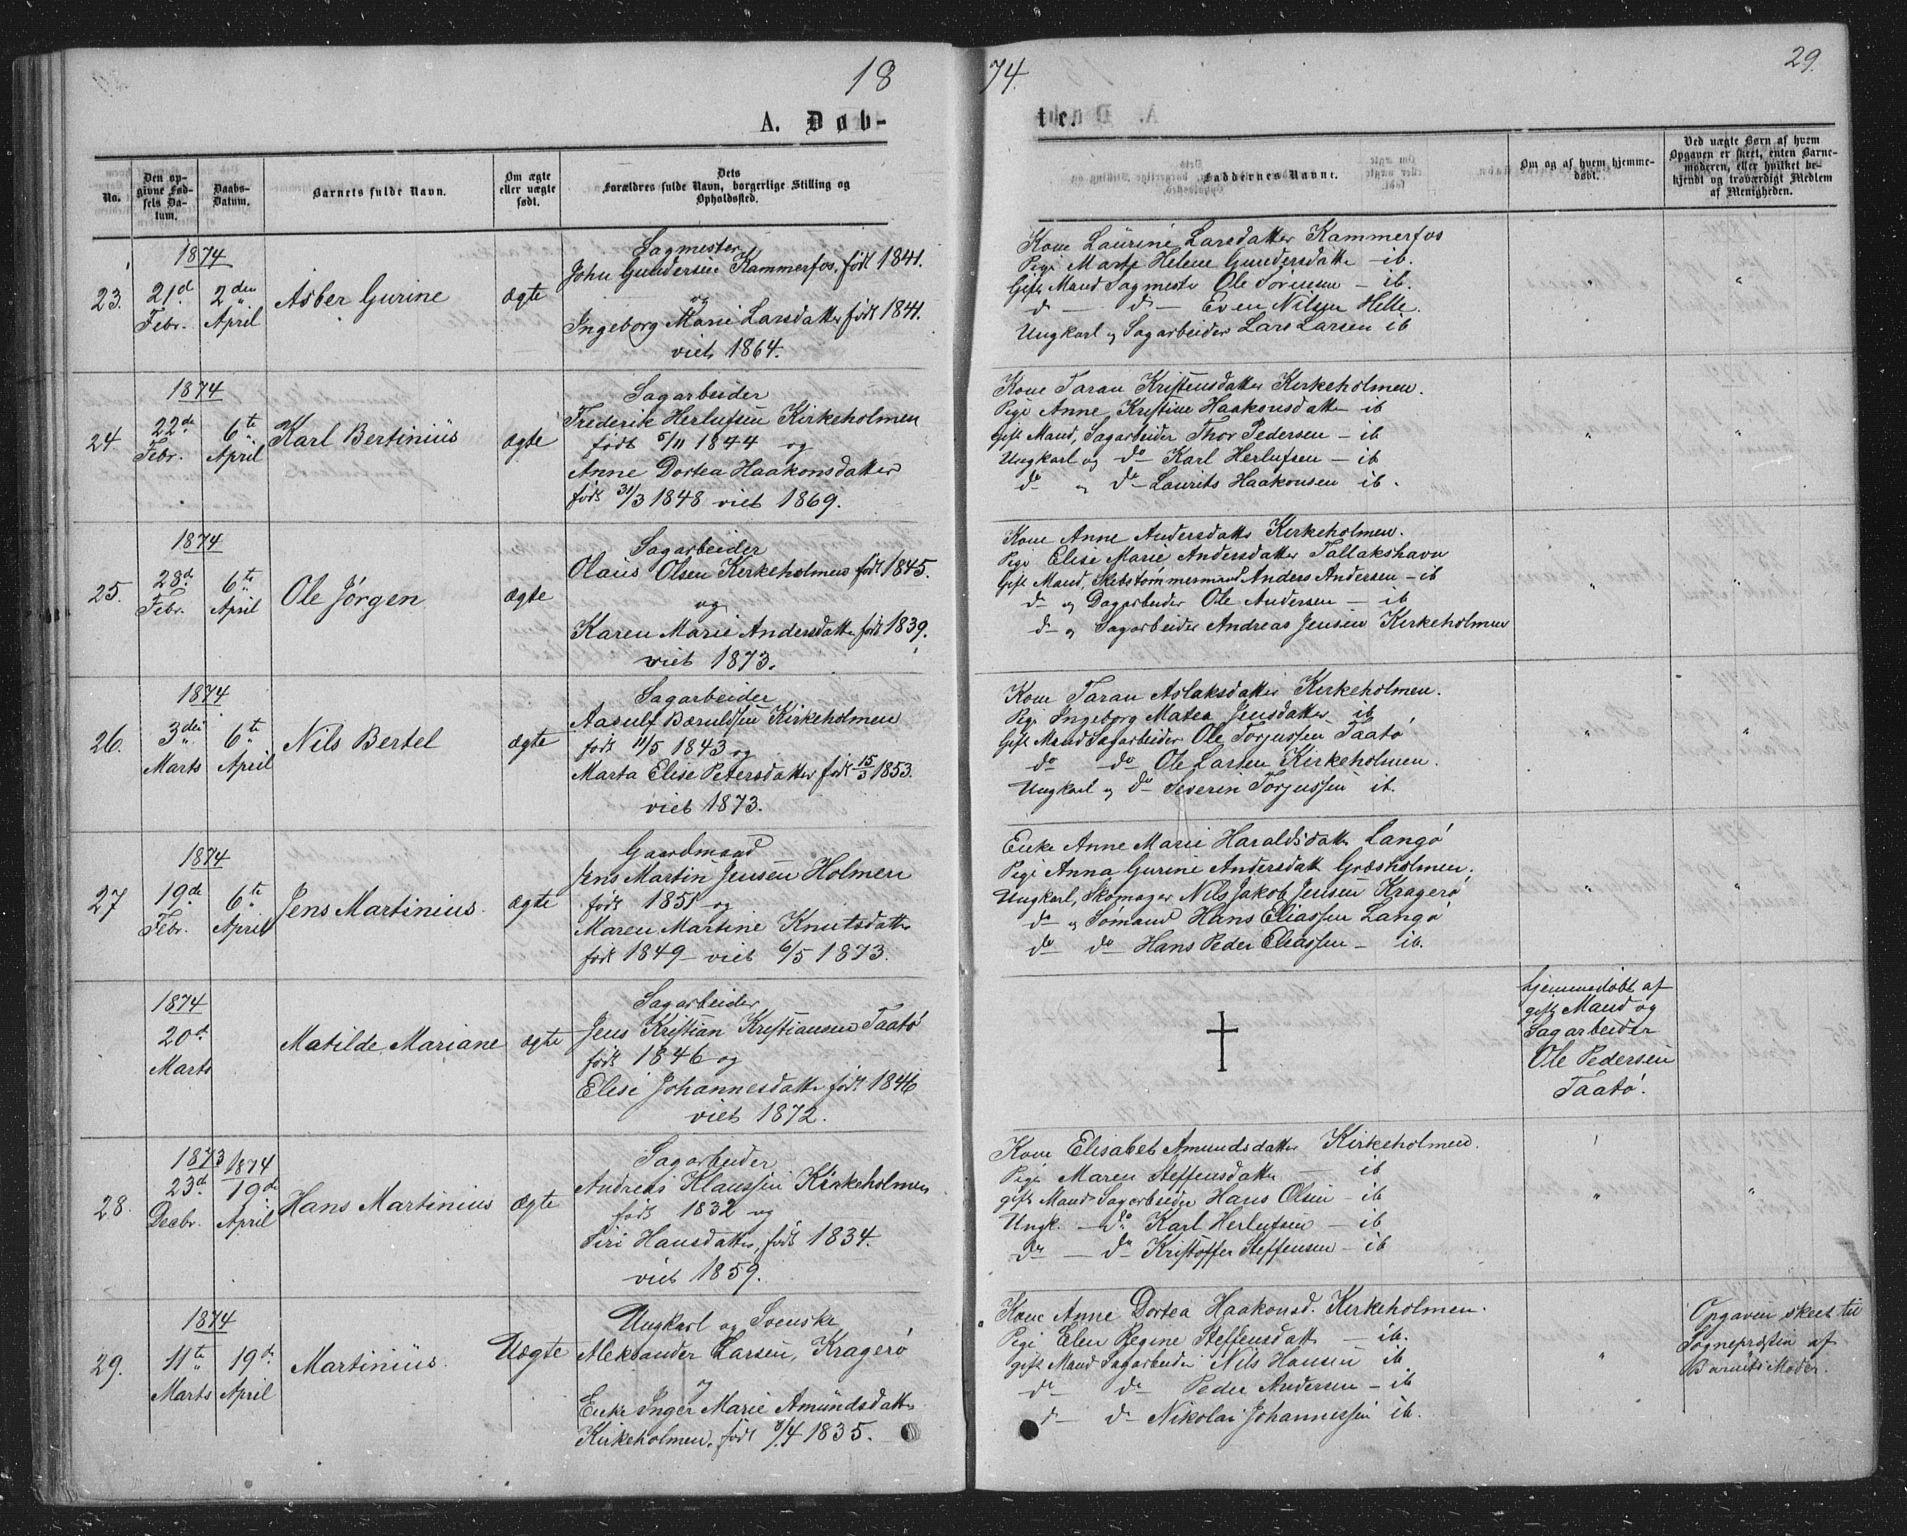 18
74.
29.
A. Døb-
te.
No.
Den op-
givne Fød-
sels Da-
tum.
Daabs-
Datum.
Barnets fulde Navn.
Om ægte
eller uægte
født.
Dets
Forældres fulde Navn, borgerlige Stilling og
Opholdssted.
Faddernes Navne.
Om og af hvem hjemme-
døbt.
Ved uægte Børn af hvem
Opgaven er skeet, enten Barne-
moderen, eller hvilket be-
kjendt og troværdigt Medlem
af Menigheden.
1874
23. 21d Febr. 2den April
Asber Gurine
ægte
Sagmester
John Gundersen Kammerfos, født 1841.
og
Ingeborg Marie Larsdatter født 1841.
viet 1864.
Kone Laurine Larsdatter Kammerfos
Pige Marte Helene Gundersdatter - ib.
Gift Mand Sagmester Ole Sørensen - ib.
d - d - Even Nilsen Helle.
Ungkarl og Sagarbeider Lars Larsen ib
1874
24. 22de Febr. 6te April
Karl Bertinius
ægte
Sagarbeider
Frederik Herlufsen Kirkeholmen
født 5/11 1844 og
Anne Dortea Haakonsdatter
født 31/3 1848 viet 1869.
Kone Taran Kristensdatter Kirkeholmen.
Pige Anne Kristine Haakonsdatter ib
Gift Mand, Sagarbeider Thor Pedersen - ib
Ungkarl og do Karl Herlufsen - ib
do og do Laurits Haakonsen ib.
1874
25. 28d. Febr. 6te April
Ole Jørgen
ægte
Sagarbeider
Olaus Olsen Kirkeholmen født 1845.
og
Karen Marie Andersdatter født 1839.
viet 1873.
Kone Anne Andersdatter Kirkeholmen.
Pige Elise Marie Andersdatter Tallakshavn
Gift Mand, Skibstømmermand Anders Andersen - ib
d - og Dagarbeider Ole Andersen - ib
d - og Sagarbeider Andreas Jensen Kirkeholmen
1874
26. 3die Marts 6te April
Nils Bertel
ægte
Sagarbeider
Aasulf Bæruldsen Kirkeholmen
født 11/5 1843 og
Marta Elise Petersdatter født 15/3 1853.
viet 1873.
Kone Taran Aslaksdatter Kirkeholmen.
Pige Ingeborg Matea Jensdatter ib
Gift Mand Sagarbeider Ole Torjussen Taatø
do do Ole Larsen Kirkeholmen.
Ungkarl og do Severin Torjussen ib.
1874
27 19de Febr. 6te April
Jens Martinius.
ægte
Gaardmand
Jens Martin Jensen Holmen
født 1851 og
Maren Martine Knutsdatter
født 1849 - viet 6/5 1873.
Enke Anne Marie Haraldsdatter Langø
Pige Anna Gurine Andersdatt Græsholmen.
Ungkarl, Skomager Nils Jakob Jensen Kragerø
d - og Sømand Hans Eliassen Langø
do do Hans Peder Eliassen - ib.
1874
20d Marts
Matilde Mariane
ægte
Sagarbeider
Jens Kristian Kristiansen Taatø
født 1846 og
Elise Johannesdatter født 1846
viet 1872.
†
hjemmedøbt af
gift Mand og
Sagarbeider
Ole Pedersen
Taatø.
28. 1873 23d. Decbr. 1874 19de April
Hans Martinius
ægte
Sagarbeider
Andreas Klaussen Kirkeholmen
født 1832 og
Siri Hansdatter, født 1834.
viet 1859.
Kone Elisabet Amundsdatter Kirkeholmen.
Pige Maren Steffensdatter - ib
gift Mand Sagarbeider Hans Olsen - ib
Ungk. - do Karl Herlufsen - ib
do - do Kristoffer Steffensen - ib
1874
29. 11te Marts 19de April
Martinius.
Uægte
Ungkarl og Svenske
Aleksander Larsen, Kragerø
og
Enke Inger Marie Amundsdatter
Kirkeholmen, født 8/4 1835.
Kone Anne Dortea Haakonsd. Kirkeholmen.
Pige Elen Regine Steffensdatt - ib.
gift Mand Sagarbeider Nils Hansen ib
d - do Peder Andersen - ib
d - do Nikolai Johannessen ib.
Opgaven skeet til
Sognepræsten af
Barnets Moder.